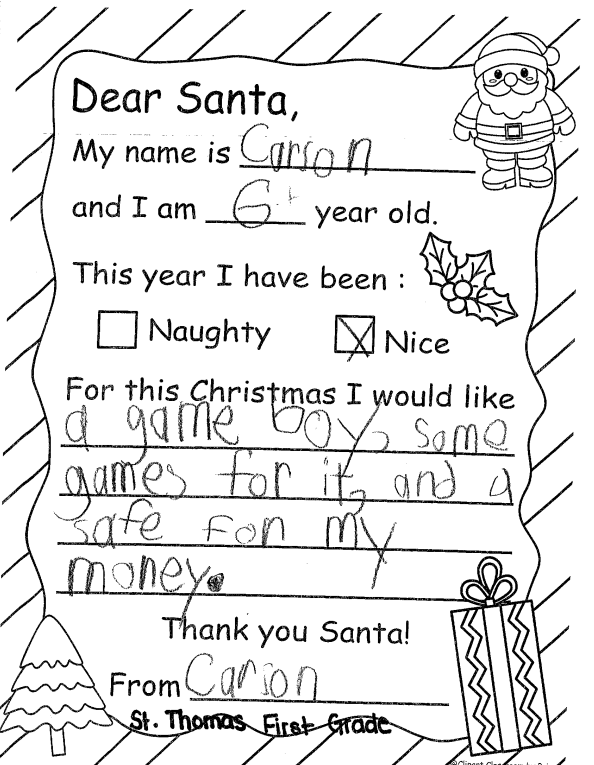 Dear Santa,
My name is Carson
and I am 6 year old.
This year I have been :
Naughty Nice
For this Christmas I would like
a game boy, some
games for it, and a
safe for my
money.
Thank you Santa!
From Carson
St. Thomas First Grade